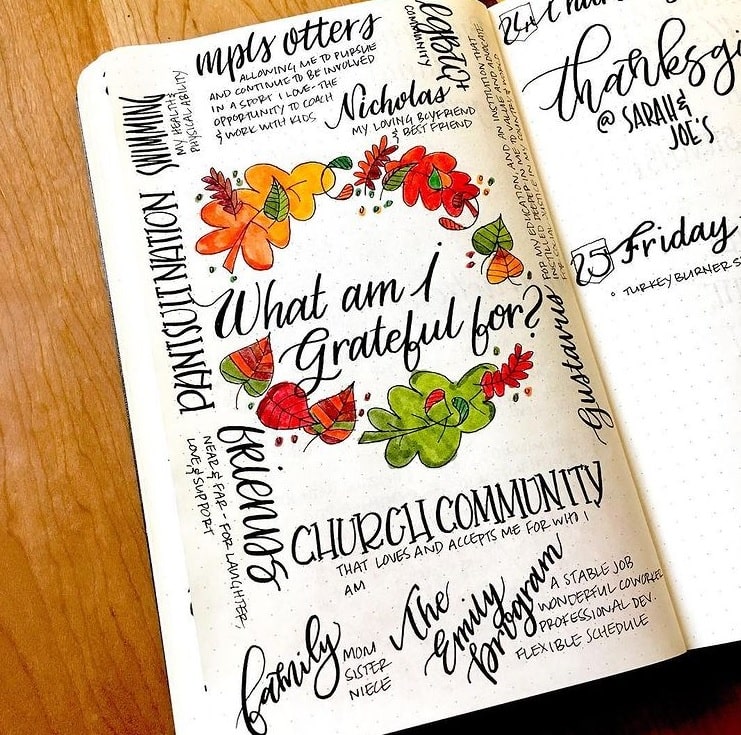 mpls otters
ALLOWING ME TO PURSUE
AND CONTINUE TO BE INVOLVED
IN A SPORT I LOVE - THE
OPPORTUNITY TO COACH
& WORK WITH KIDS
LGBTQ+
COMMUNITY
Nicholas
MY LOVING BOYFRIEND
& BEST FRIEND
SWIMMING
MY HEALTH &
PHYSICAL ABILITY
PANTSUIT NATION
What am I
Grateful for?
Gustavus
FOR MY EDUCATION, AND AN INSTITUTION THAT
INSTILLED DEEPER IN ME TO VALUE & ADVOCATE
FOR SOCIAL JUSTICE IN MY COUNTRY & WORLD
friends
NEAR & FAR - FOR LAUGHTER,
LOVE, & SUPPORT
CHURCH COMMUNITY
THAT LOVES AND ACCEPTS ME FOR WHO I
AM
family
MOM
SISTER
NIECE
The
Emily
program
A STABLE JOB
WONDERFUL
PROFESSIONAL DEV.
FLEXIBLE SCHEDULE
24
@ SARAH &
JOE'S
25 Friday